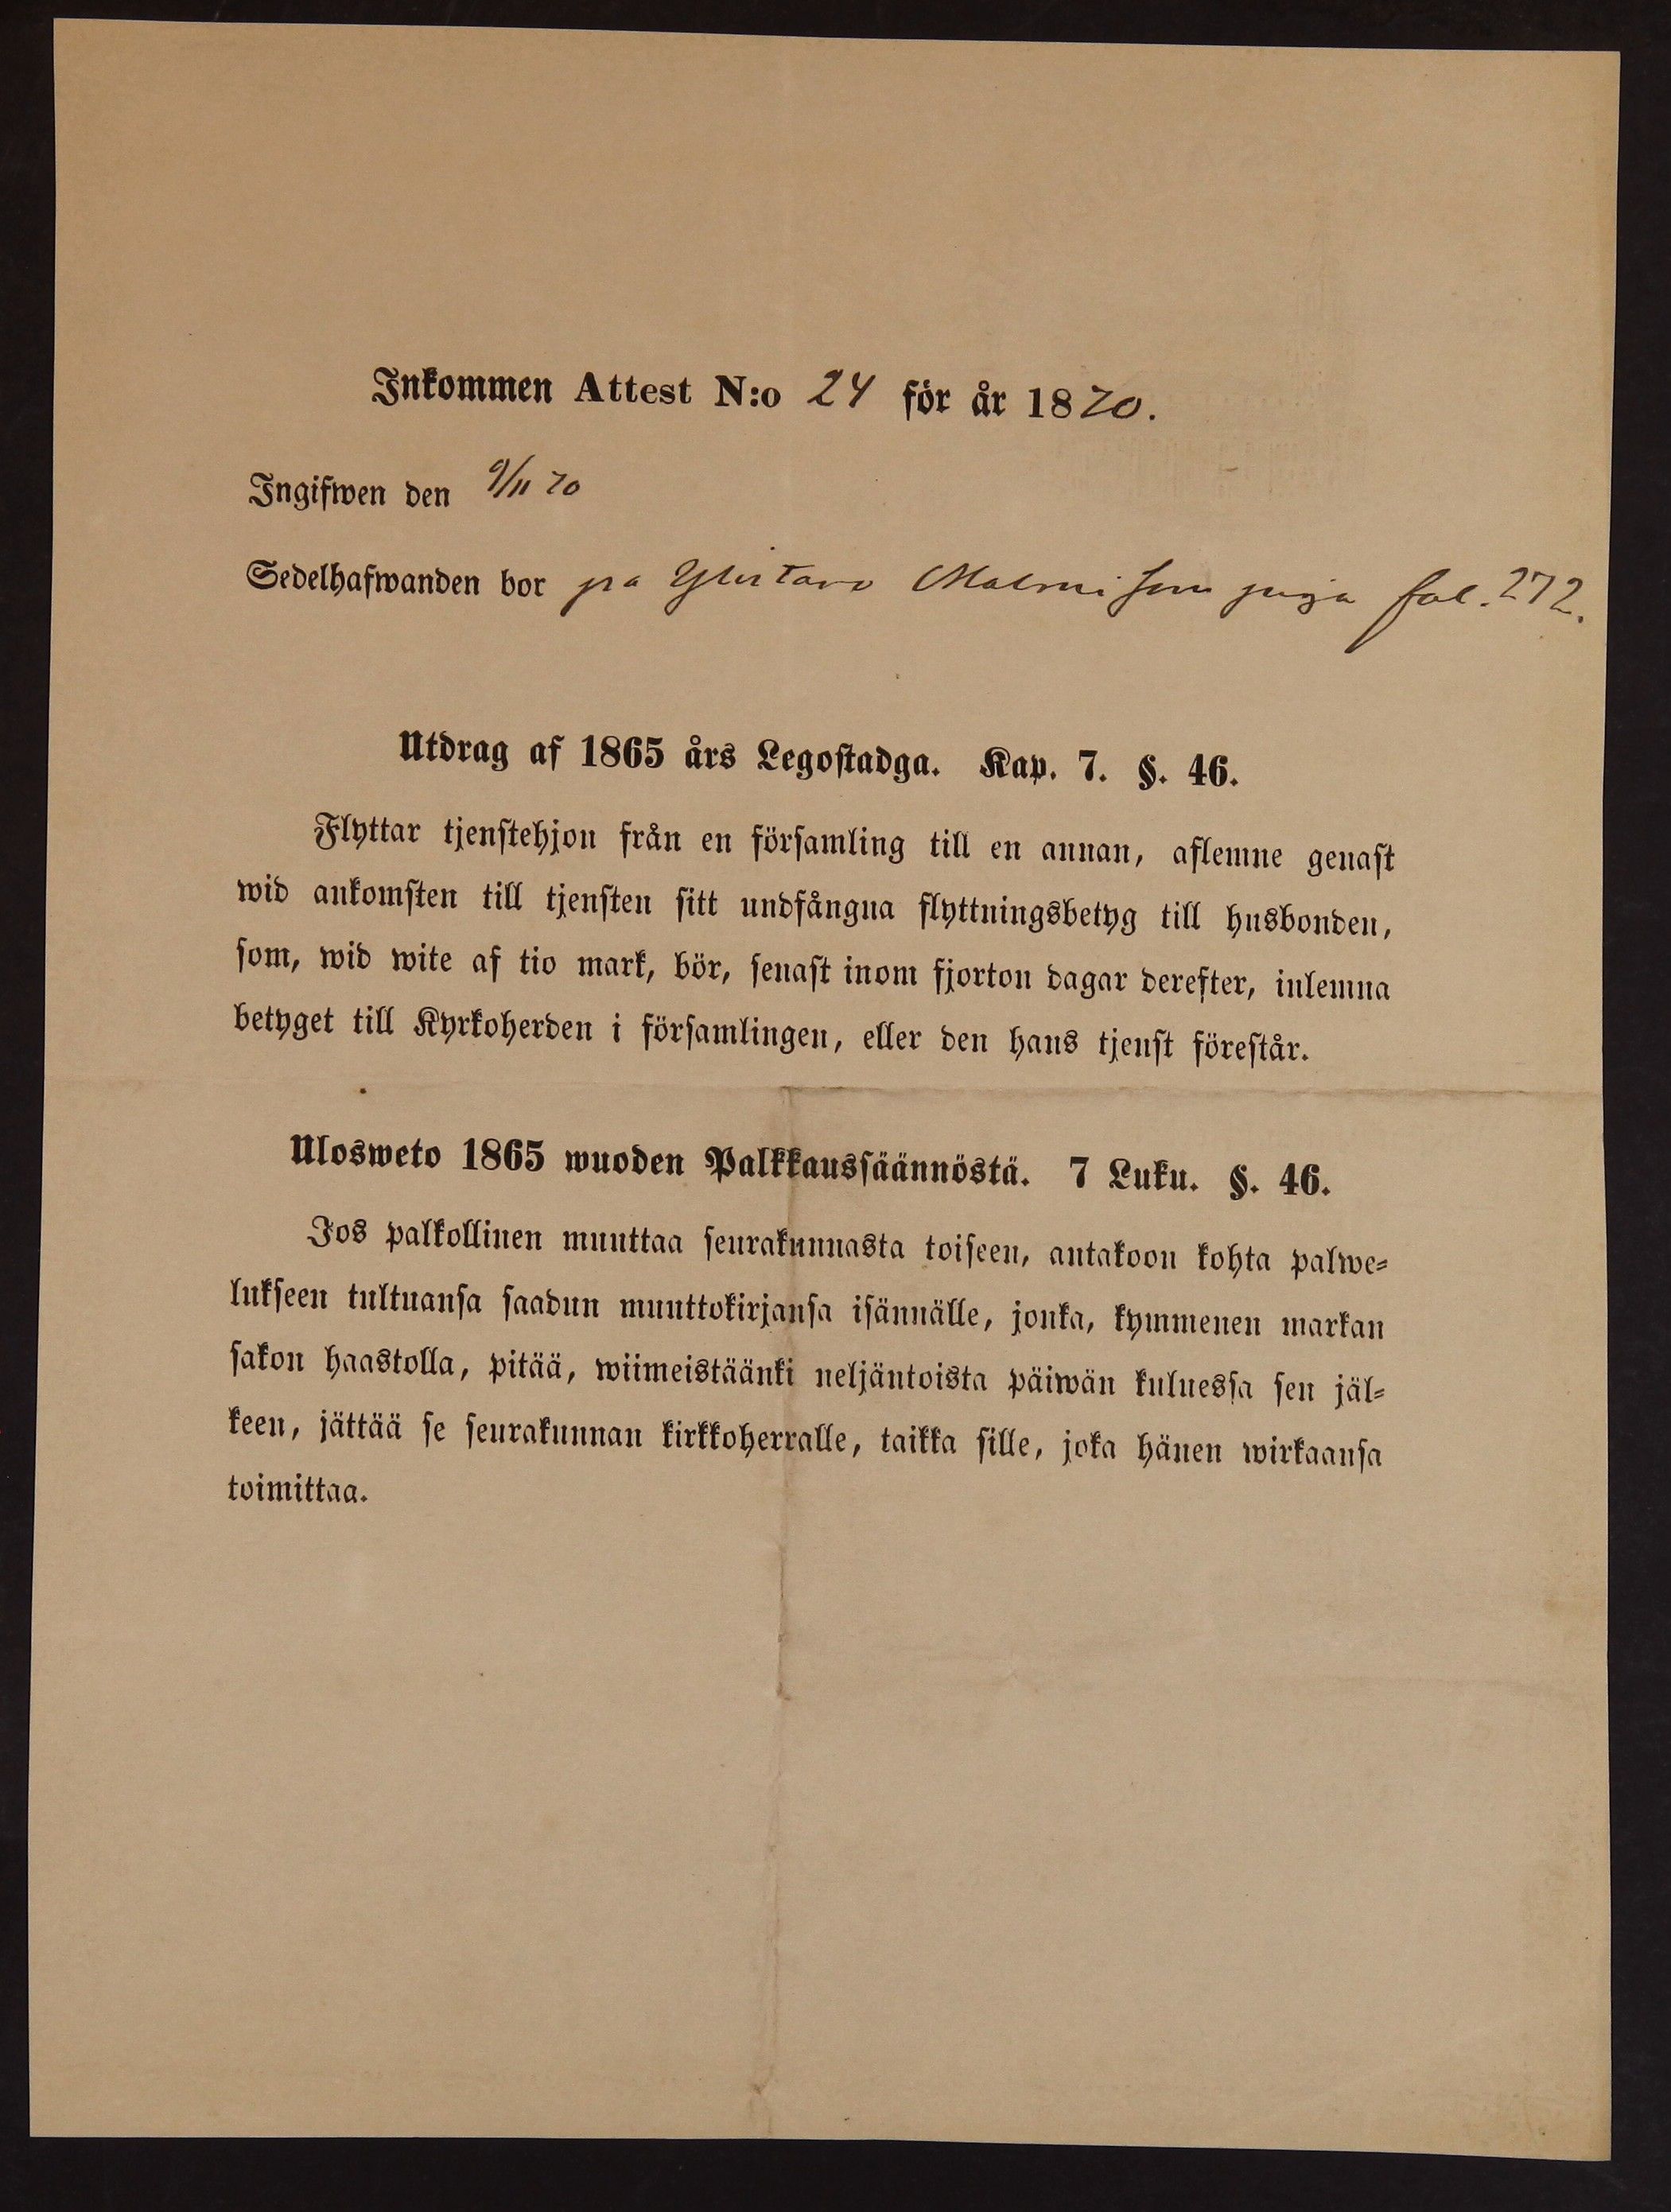 Inkommen Attest N:o 24 för år 1870.
Ingifwen den 9/11 70
Sedelhafwanden bor på Ylistaro Malmi som piga fol. 272.
Utdrag af 1865 års Legostadga. Kap. 7. §. 46.
Flyttar tjenstehjon från en församling till en annan, aflemne genast
wid ankomsten till tjensten sitt undfångna flyttningsbetyg till husbonden,
som, wid wite af tio mark, bör, senast inom fjorton dagar derefter, inlemna
betyget till Kyrkoherden i församlingen, eller den hans tjenst förestår.
Ulosweto 1865 wuoden Palkkaussäännöstä. 7 Luku. §. 46.
Jos palkollinen muuttaa seurakunnasta toiseen, antakoon kohta palwe-
lukseen tultuansa saadun muuttokirjansa isännälle, jonka, kymmenen markan
sakon haastolla, pitää, wiimeistäänki neljäntoista päiwän kuluessa sen jäl-
keen, jättää se seurakunnan kirkkoherralle, taikka sille, joka hänen wirkaansa
toimittaa.